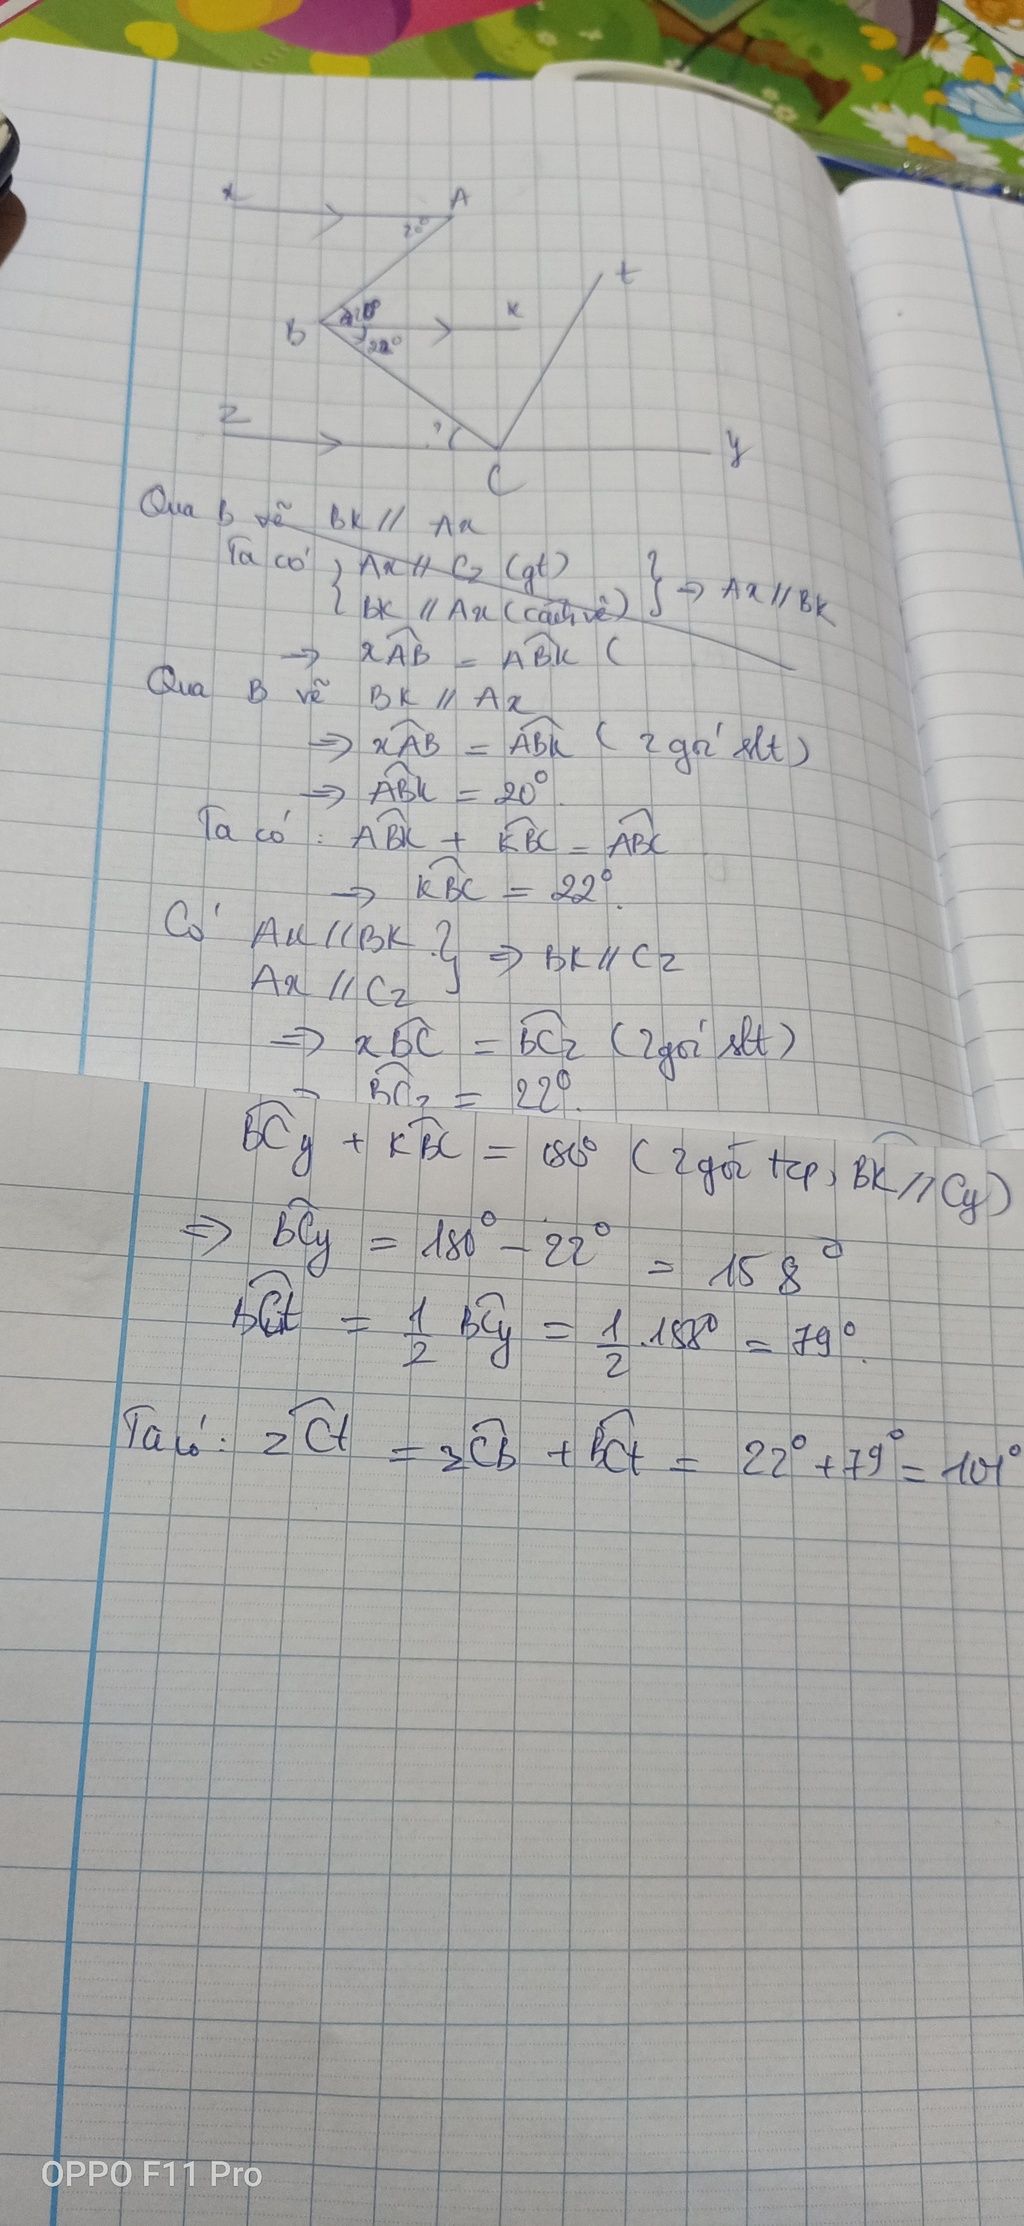 x A
20°
t
K
B 20°
22°
z
?
y
C
Qua B vẽ BK // Ax
Ta có { Ax // Cz (gt)
{ BK // Ax (cách vẽ) } => Ax // BK
=> xAB = ABK (
Qua B vẽ BK // Ax
=> xAB = ABK ( 2 góc slt)
=> ABK = 20°.
Ta có : ABK + KBC = ABC
=> KBC = 22°.
Có Ax // BK
Ax // Cz } => BK // Cz
=> xBC = BCz (2 góc slt)
=> BCz = 22°.
BCy + KBC = 180° ( 2 góc tcp, BK // Cy)
=> BCy = 180° - 22° = 158°
BCt = 1/2 BCy = 1/2 . 158° = 79°.
Ta có : zCt = zCB + BCt = 22° + 79° = 101°
OPPO F11 Pro